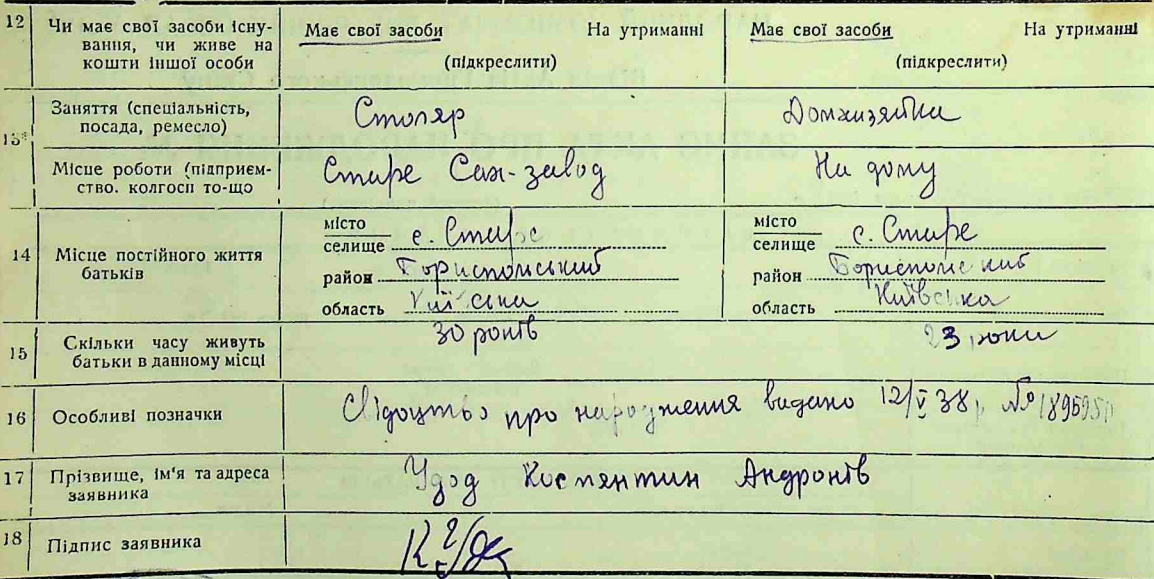 12 Чи має свої засоби існування, чи живе на кошти іншої особи Має свої засоби На утриманні (підкреслити) Має свої засоби На утриманні (підкреслити)
13* Заняття (спеціальність, посада, ремесло) Столяр Домхизяйка
Місце роботи (підприємство. колгосп то-що Старе Сах-завод На дому
14 Місце постійного життя батьків
місто селище с. Старе місто селище с. Старе
район Бориспольский район Бориспольский
область Київська область Київська
15 Скільки часу живуть батьки в данному місці 30 років 23 роки
16 Особливі позначки Свідоцтво про народження видано 12/V 38 р №
17 Прізвище, ім'я та адреса заявника Удод Костянтин Андронів
18 Підпис заявника